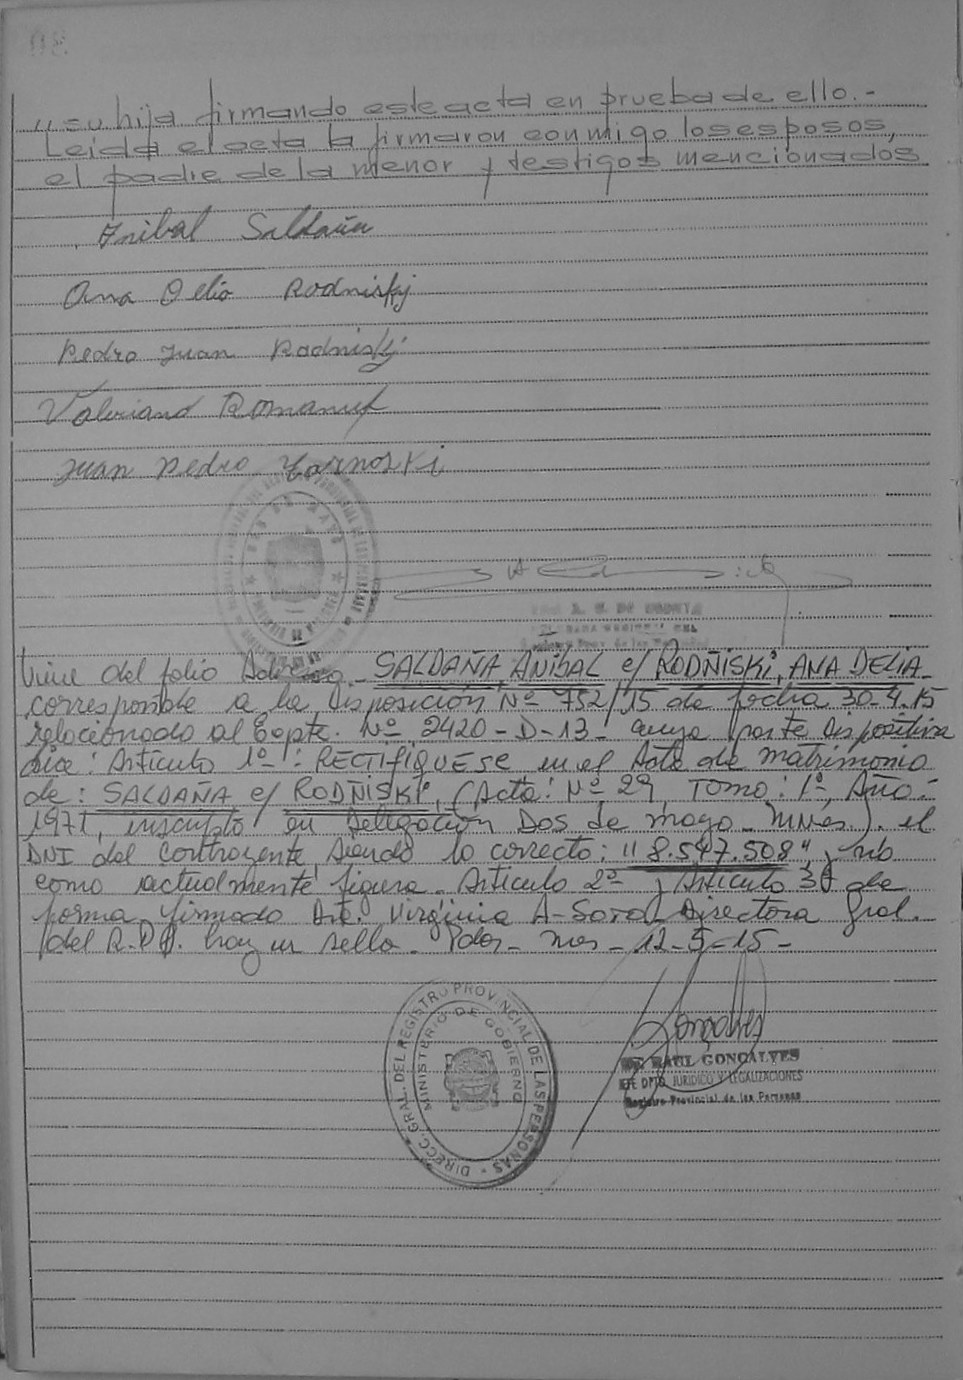 " su hija firmando este acta en prueba de ello.-
Leida el acta la firmaron conmigo los esposos,
el padre de la menor y testigos mencionados
Anibal Saldaña
Ana Delia Rodniskj
Pedro Juan Rodniskj
Valeriano Romaniuk
Juan Pedro Zarnoski
DOS DE MAYO
Viene del folio SALDAÑA, ANIBAL c/ RODÑISKI, ANA DELIA
corresponde a la Disposición Nº 752/15 de fecha 30-4-15
relacionado al Expte. Nº 2420-D-13- cuya parte dispositiva
dice: Artículo 1º-: RECTIFIQUESE en el Acta de Matrimonio
de: SALDAÑA c/ RODÑISKI, (Acta: Nº 29, Tomo: 1º, Año:
1971, inscripto en Delegación Dos de Mayo- Mnes.). el
DNI del contrayente, siendo lo correcto: "8.547.508" y no
como actualmente figura. Artículo 2º y Artículo 3º de
forma. Firmado Dra. Virginia A- Soto- Directora Gral.
del R.P.P. hay un sello- Pdas- Mnes- 12-5-15-
DIRECC. GRAL. DEL REGISTRO PROVINCIAL DE LAS PERSONAS -
MINISTERIO DE GOBIERNO
Gonçalves
RAUL GONCALVES
JEFE DPTO. JURIDICO Y LEGALIZACIONES
Registro Provincial de las Personas